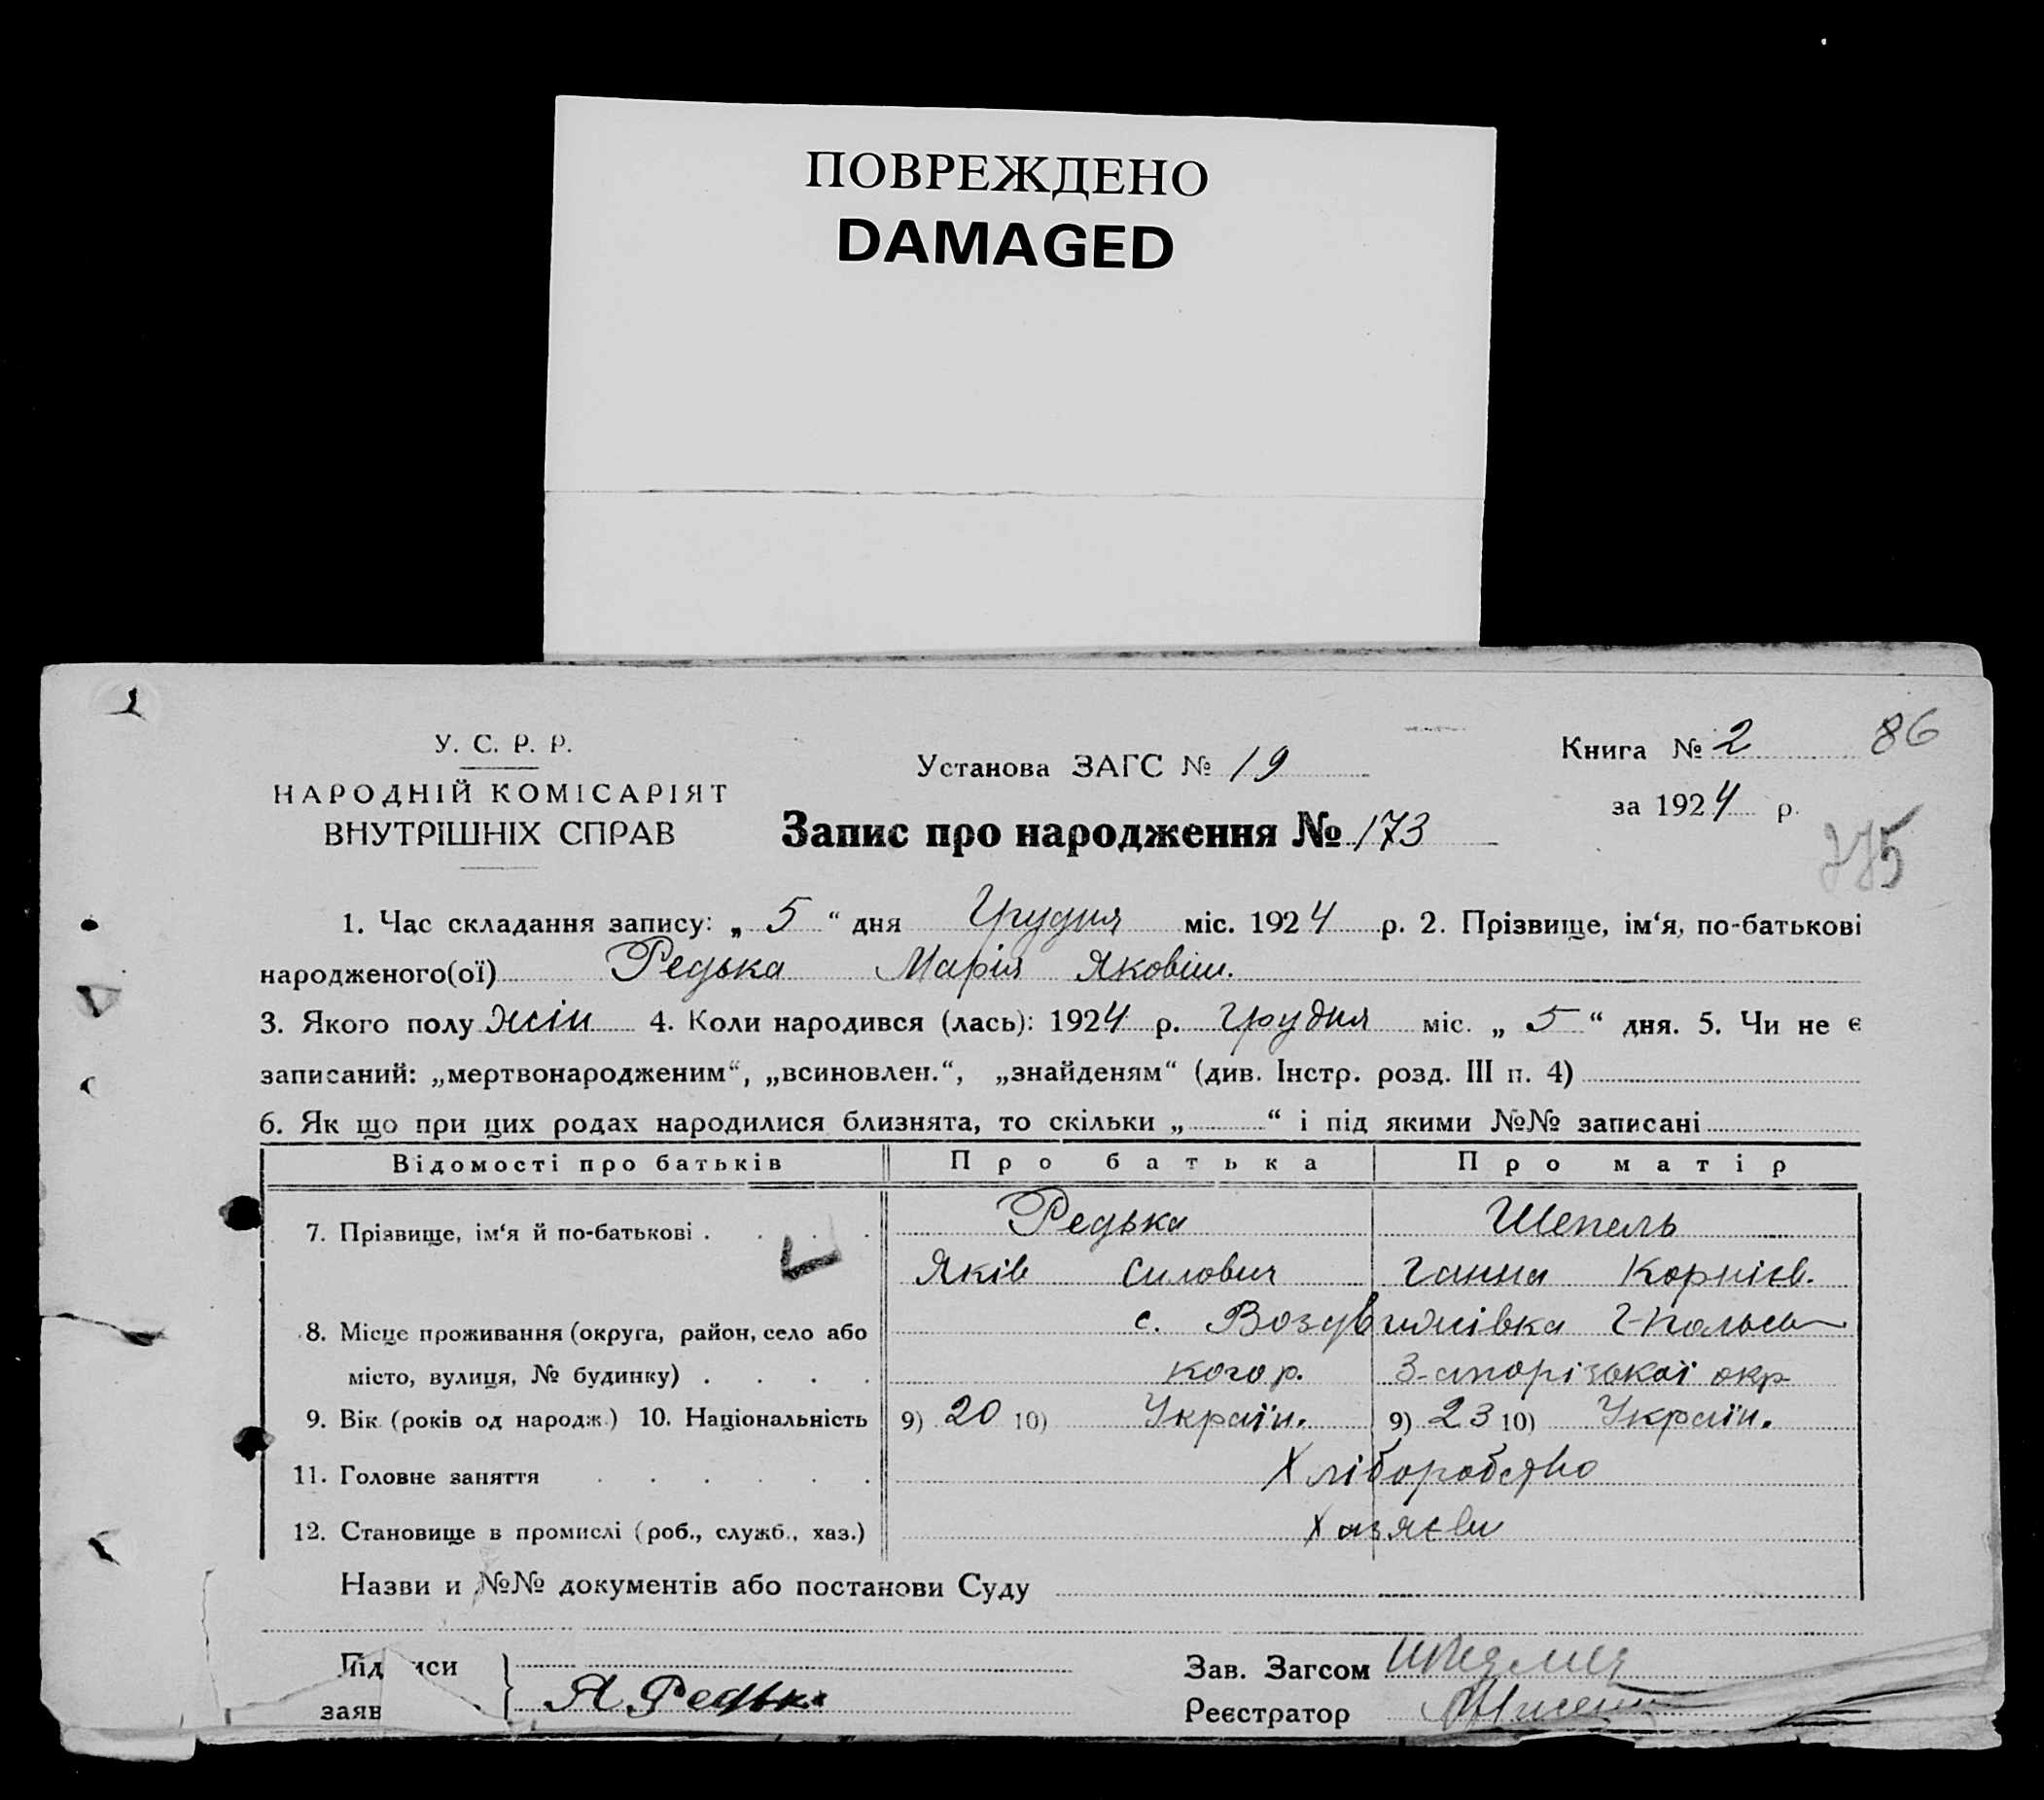 ПОВРЕЖДЕНО
DAMAGED
У. С. Р. Р.
НАРОДНІЙ КОМІСАРІЯТ
ВНУТРІШНІХ СПРАВ
Установа ЗАГС № 19
Запис про народження № 173
Книга № 2 86
за 1924 р.
1. Час складання запису: „ 5 “ дня Грудня міс. 1924 р. 2. Прізвище, ім‘я, по-батькові
народженого(ої) Редька Марія Яковіш.
3. Якого полу жін 4. Коли народився (лась): 1924 р. Грудня міс. „ 5 “ дня. 5. Чи не є
записаний: „мертвонародженим“, „всиновлен.“, „знайденям“ (див. Інстр. розд. III п. 4)
6. Як що при цих родах народилися близнята, то скільки „ “ і під якими №№ записані
Відомості про батьків Про батька Про матір
7. Прізвище, ім‘я й по-батькові . . . . Редька Шепель
Яків Силович Ганна Корнієв.
8. Місце проживання (округа, район, село або с. Воздвижівка Г-Польсь
місто, вулиця, № будинку) . . . . кого р. З-апорізької окр
9. Вік (років од народж.) 10. Національність 9) 20 10) Україн. 9) 23 10) Україн.
11. Головне заняття . . . . . . Хліборобство
12. Становище в промислі (роб., служб., хаз.) Хазяєви
Назви и №№ документів або постанови Суду
Під иси
заяв
Я Редька
Зав. Загсом
Реєстратор